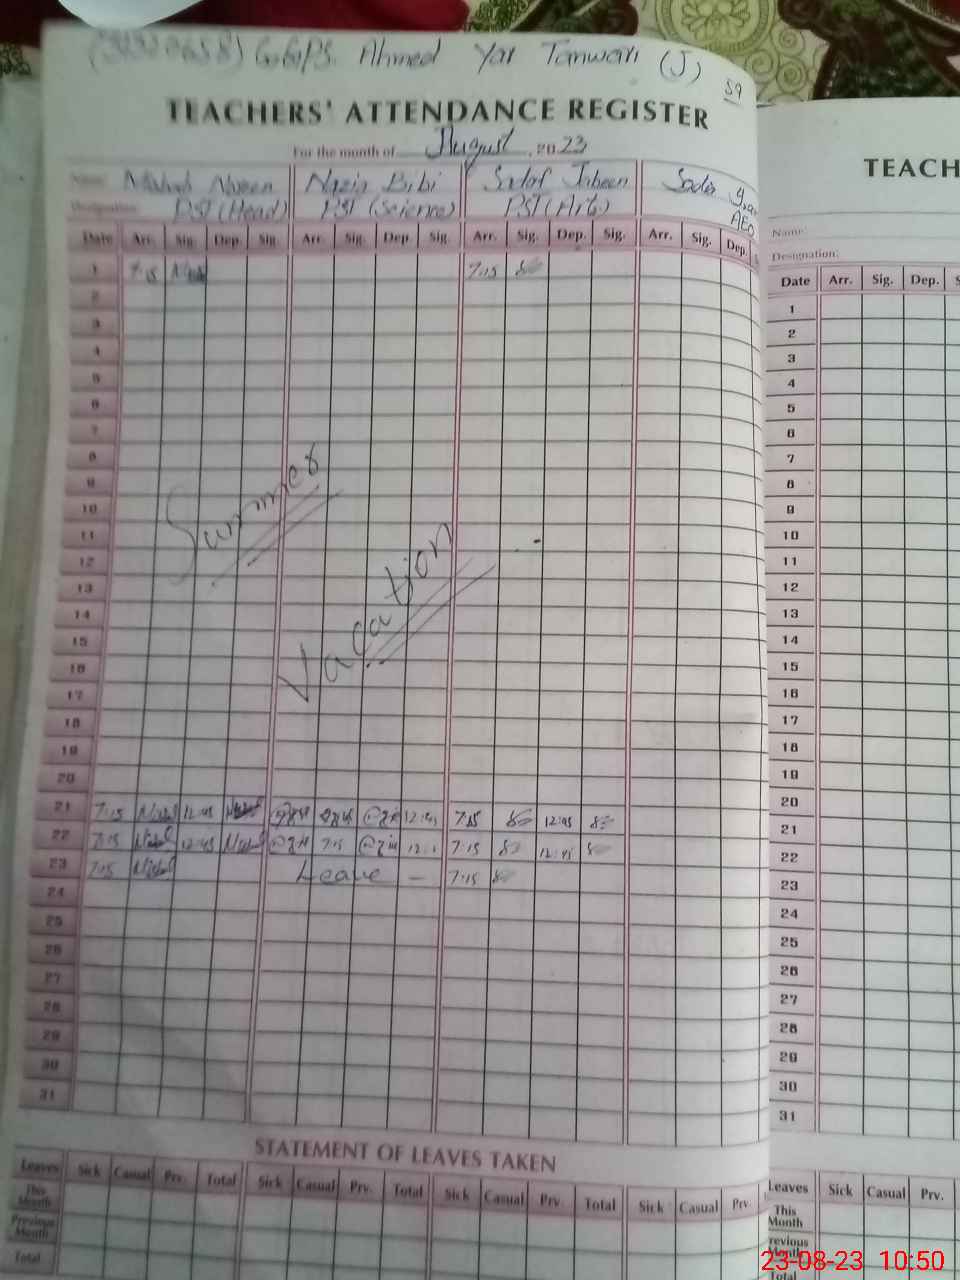 GGPS. Ahmed Yar Tanwari (J)
59
TEACHERS' ATTENDANCE REGISTER
For the month of August 2023
Name: Naveen Nazia Bibi Sadaf Jabeen Sadia
Designation: PST (Head) PST (Science) PST (Arts) AEO
Date Arr. Sig. Dep. Sig. Arr. Sig. Dep. Sig. Arr. Sig. Dep. Sig. Arr. Sig. Dep.
1 7:15 7:15
2
3
4
5
6
7
8
9
10
11
12
13
14
15
16
17
18
19
20
Summer
Vacation
21 7:15 12:45 7:15 12:45
22 7:15 12:45 7:15 7:15 12:45
23 7:15 Leave — 7:15
24
25
26
27
28
29
30
31
STATEMENT OF LEAVES TAKEN
Leaves Sick Casual Prv. Total Sick Casual Prv. Total Sick Casual Prv. Total Sick Casual Prv.
This Month
Previous Month
Total
TEACH
Name:
Designation:
Date Arr. Sig. Dep. S
1
2
3
4
5
6
7
8
9
10
11
12
13
14
15
16
17
18
19
20
21
22
23
24
25
26
27
28
29
30
31
Leaves Sick Casual Prv.
This Month
revious Month
Total
23-08-23 10:50